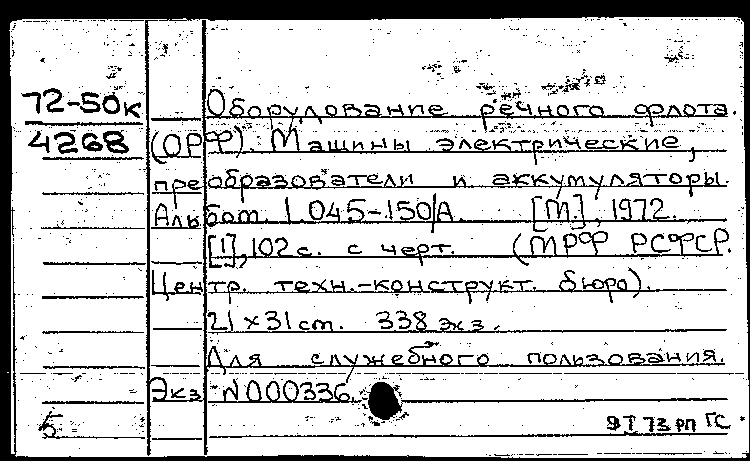 72-50к Оборудование речного флота.
4268 (ОРФ). Машины электрические,
преобразователи и аккумуляторы.
Альбом 1.045-150/А. [М.], 1972.
[1], 102 с. с черт. (МРФ РСФСР.
Центр. техн.-конструкт. бюро).
21×31 cm. 338 экз.
Для служебного пользования.
Экз N000336
5 73 рп ГС